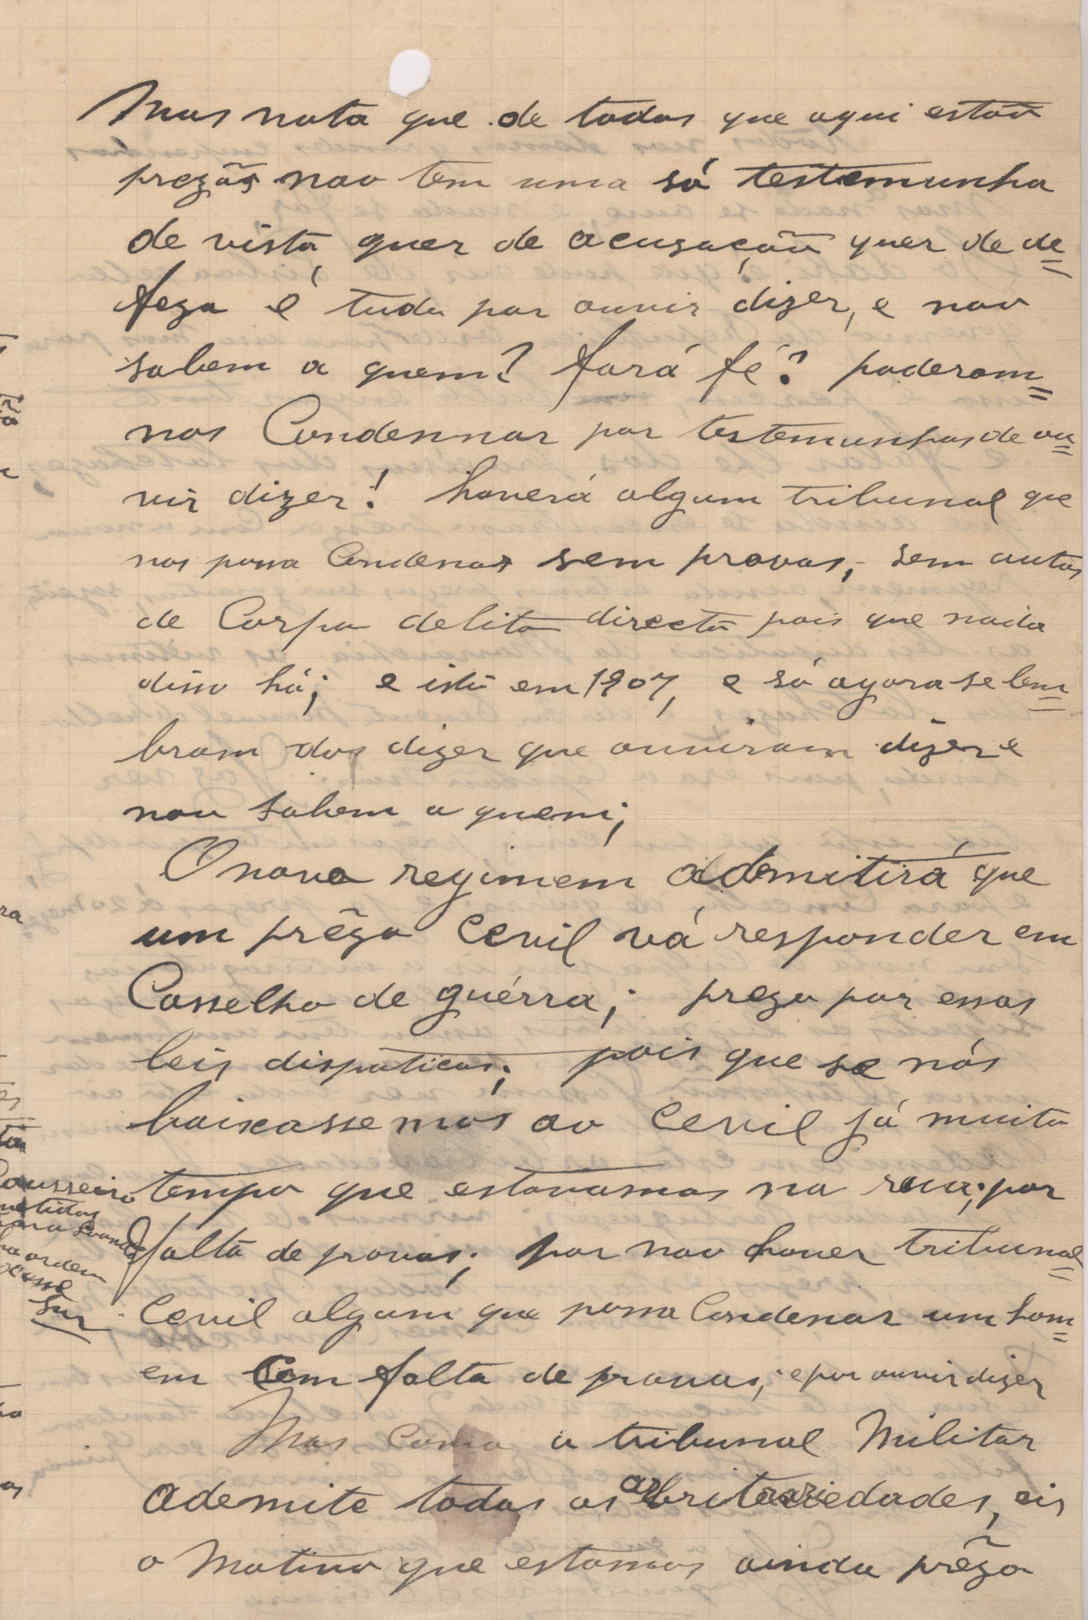 Mas nota que de todos que aqui estão
prezãs nao tem uma só testemunha
de vista quer de acusação quer de de=
feza é tudo por ouvir dizer, e nao
sabem a quem? fará fé? poderam=
nos Condennar por testemunhas de ou=
vir dizer! haverá algum tribunal que
nos possa Condenar sem provas, sem autos
de Corpo delito directo pois que nada
disso há; e isto em 1907, e só agora se lem=
bram dos dizer que ouviram dizer e
nao sabem a quem;
O novo regimem ademitirá que
um prêzo Cevil vá responder em
Cosselho de guérra; prezo por essas
leis dispoticas; pois que se nós
baixassemos ao Cevil já muito
tempo que estavamos na rua; por
falta de provas; por nao haver tribunal=
Cevil algum que possa Condenar um hom=
em Com falta de provas; e por ouvir dizer
Mas Como o tribunal Militar
ademite todas as arbritariedades, eis
o Motivo que estamos ainda prêzo
para
ordem
Sur